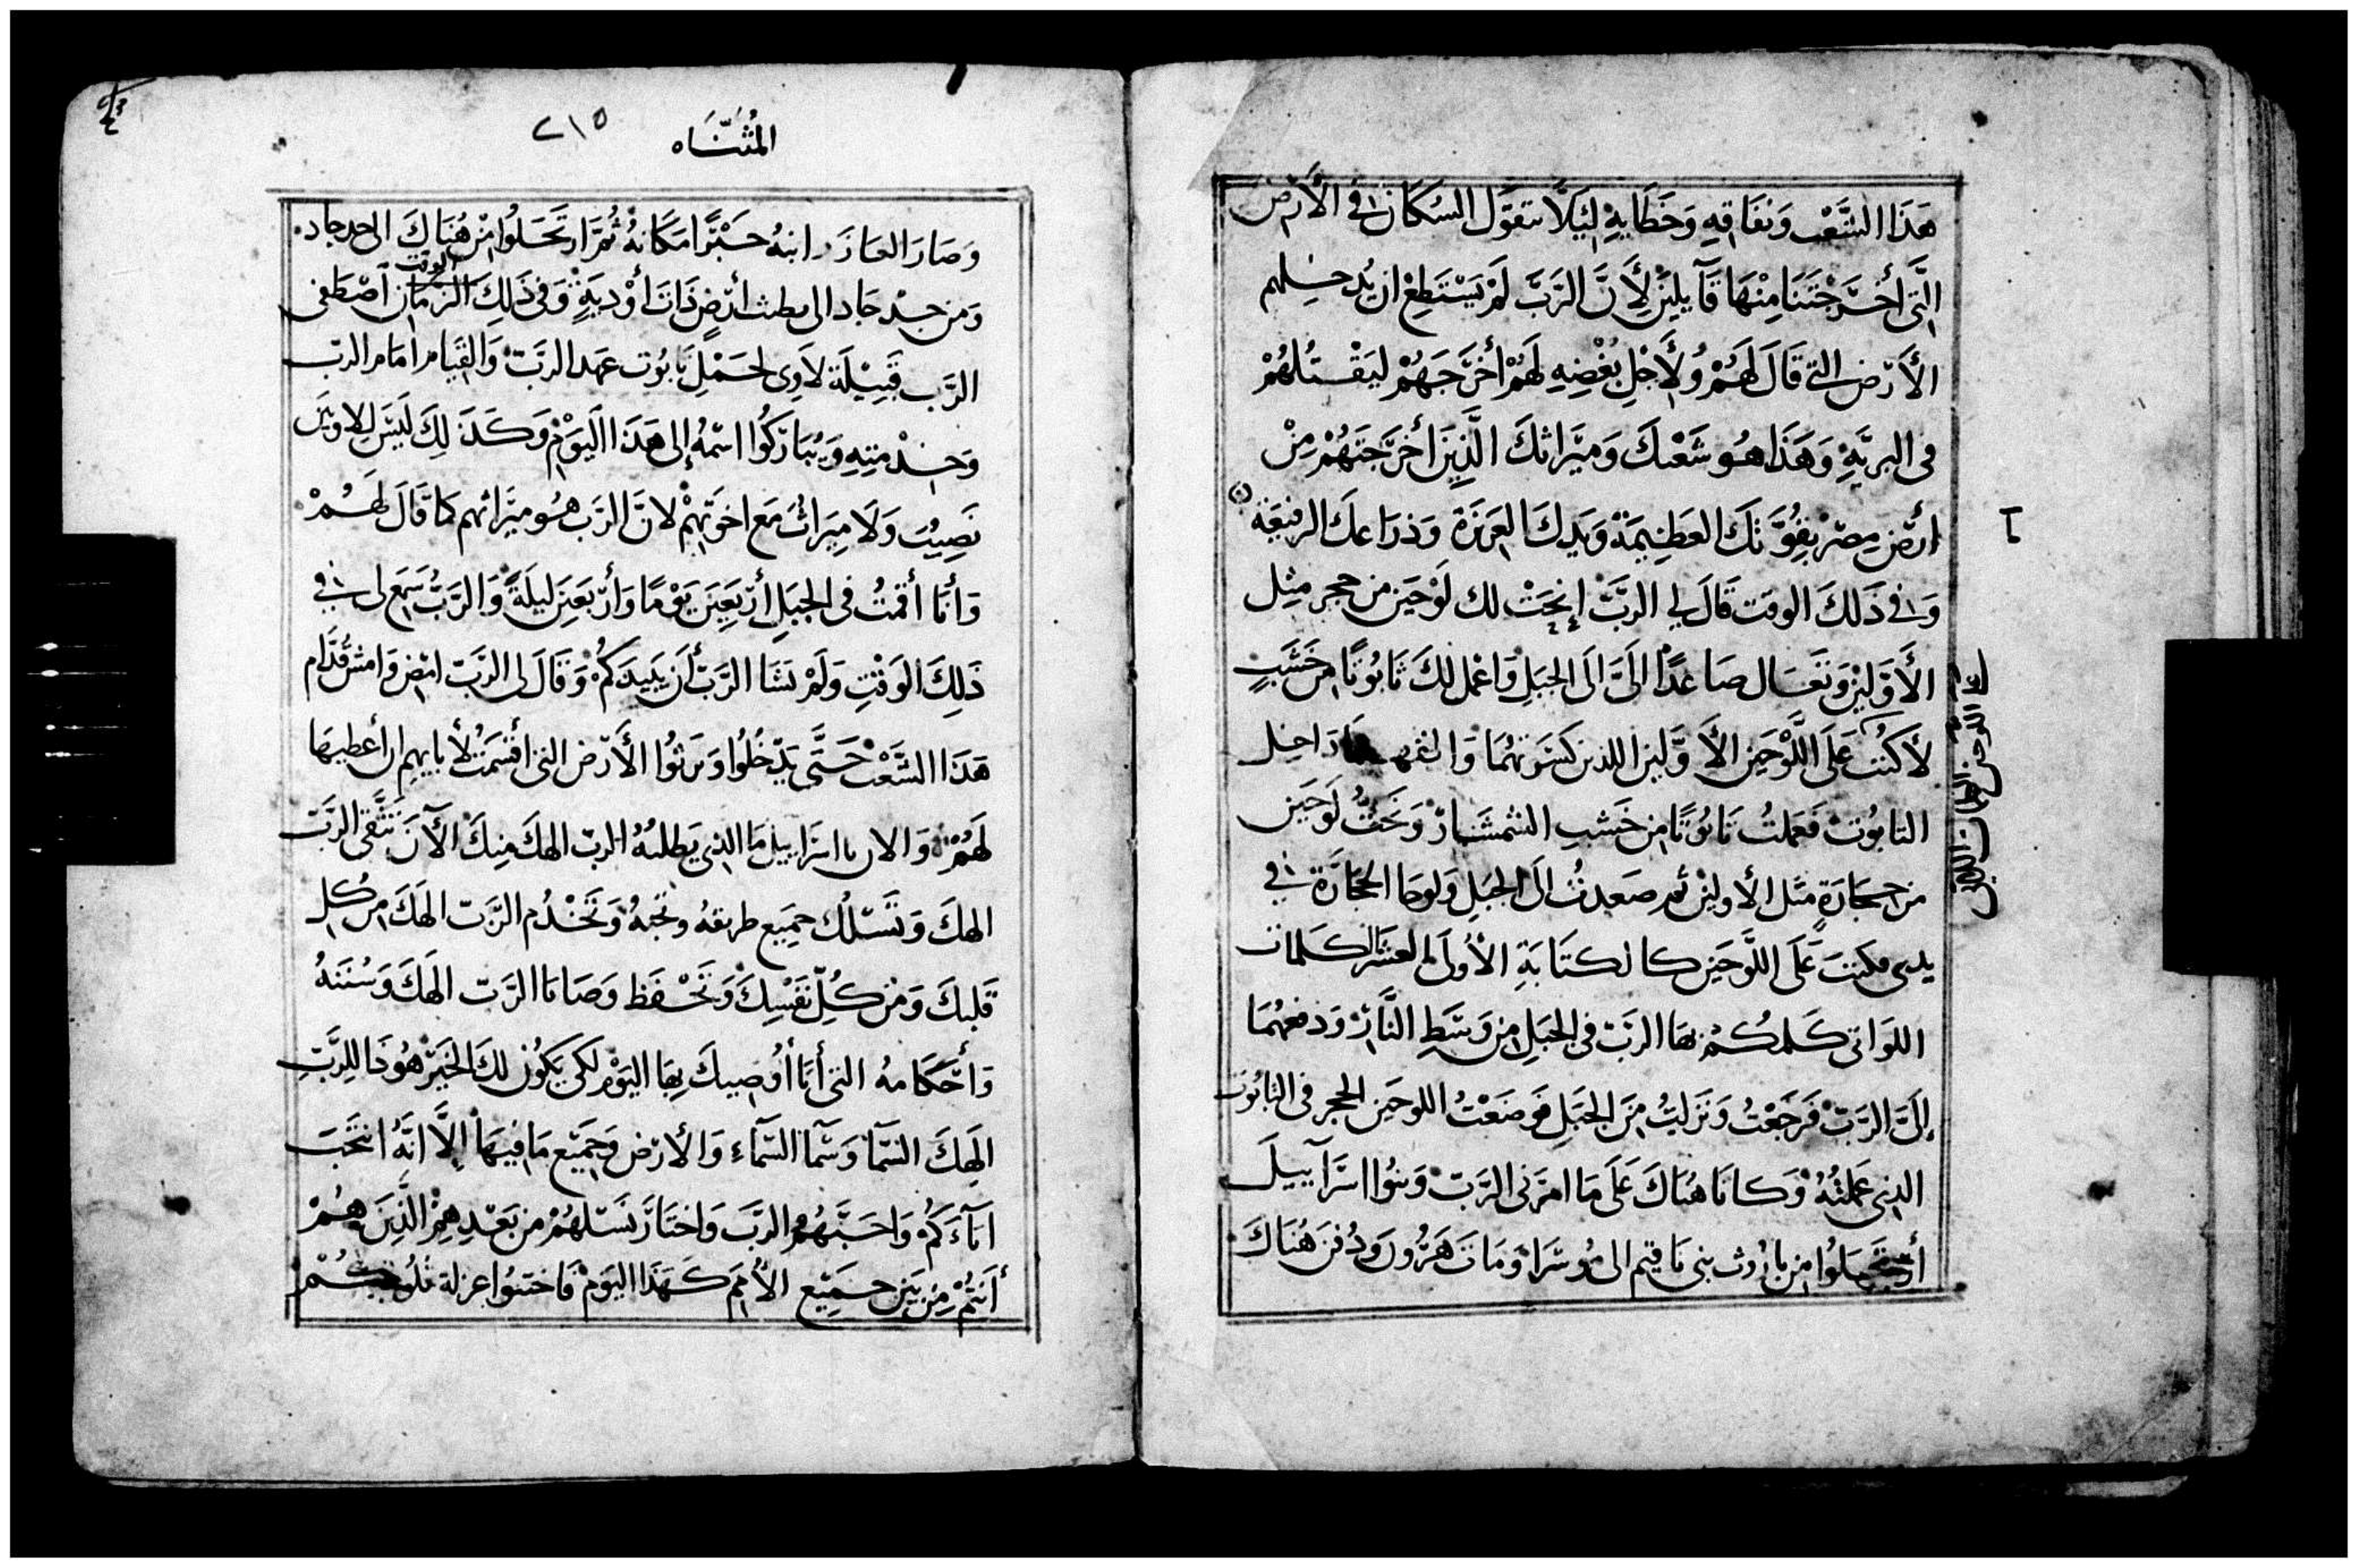 هَذَا الشَّعْب وَنفَاقِهِ وَخَطَايِهِ لِيَلَّا تقوَّل السُكَان فِي الأَرْض
الَّتى أَخْرَجْتَنَا مِنْهَا قَآيلِيْن لِأَنَّ الرَبَّ لَمْ يَسْتَطِعْ ان يُدخِلهم
الأَرْض التى قَالَ لَهُمْ وُلأَجْل بُغْضِهِ لَهُمْ أَخرَجَهُمْ ليَقْتُلهُمْ
فى البريَّةِ وَهَذَا هُو شَعْبكَ وَمِيْرَاثكَ الَّذِيْنَ أَخرَجتَهُمْ مِنْ
أرْض مِصْر بِقُوَّتكَ العَظِيمَة وَيدكَ العَزيزَة وَذرَاعكَ الرفيعَه
٦
وَفى ذَلكَ الوقت قَالَ لِي الرَبّ إنْحَتْ لك لَوْحَيْن من حجر مثِل
الأَوَّلِيْن وَتعَال صَاعدًا الَىَّ الَى الجبَلِ وَاعْمل لكَ تَابُوتًا مِن خَشَبٍ
لأكتُبَ عَلَى اللَّوْحَيْن الأَوَّلِين اللذين كسَرتهُمَا وَ دَاخِل
التابُوت فَعَملتُ تَابُوتًا مِن خَشب الشمشَار وَنحَتُّ لَوحَيْن
من حجَارَةٍ مثَل الأولِيْن ثم صَعدتُ الَى الجبَلِ وَلوحَا الحجَارَة فِي
يدى فكتبَ عَلَى اللَّوْحَيْن كالكتَابَةِ الأُولَى العشر الكَلمات
اللوَاتى كَلمكُمْ بهَا الربّ فى الجبَلِ مِن وَسَطِ النَّار وَدفعهُمَا
إلَىَّ الرَبّ فَرجَعْتُ وَنَزلتُ مِنَ الجبَلِ فوَضَعْتُ اللوحَيْن الحجر فى التابُوت
الذى عَملتُهُ وَكانَا هُنَاكَ عَلَى مَا امرَنى الرَبّ وَبنُوا اسْرَآييلَ
أرتحَلُوا مِن بارُوث بنى يَاقيم الى مُوسَرَا وَمَاتَ هَرُون وَدُفنَ هُنَاكَ
المُثنَّاه ٢١٥
وَصَارَ العَازَر ابنهُ حَبْرًا مكَانهُ ثُمَّ ارتحَلُوا مِنْ هُنَاكَ الى جدجاد
وَمن جدجَاد الى يطبث أرْضٍ ذَاتَ أوْدِيَةٍ وَفى ذَلِكَ الزمَان اصْطَفى
الوقت
الرَب قَبِيْلَة لَاوى لحَمْل تَابُوت عهد الرَبّ وَالقيَام أمَام الربّ
وَخِدْمتِهِ وَيُبَارَكُوا اسْمهُ إلى هَذَا اليَوْم وَكَذَلِكَ لَيسَ للاويين
نَصِيْبُ وَلَا مِيرَاثُ مَع اخوَتِهمْ لانَّ الرَب هُو ميْرَاثهم كمَا قَالَ لَهُمْ
وَأنَا أقمْتُ فى الجبَلِ أرْبَعِيْنَ يَوْمًا وَأرْبعَيْنَ لَيلَةً وَالرَبُّ سَمَع لى فِي
ذَلِكَ الوَقْتِ وَلَمْ يَشَا الرَبّ أَن يُبيدَكُمْ وَقَالَ لى الرَبّ امْض وَامش قُدَّام
هَذَا الشَّعْب حَتَّى يَدْخُلُوا وَيرثوُا الأَرْض التى اقسَمْتُ لأَبايهِم ان أعطيهَا
لَهُمْ وَالان يا اسرَاييل مَا الذى يَطلبُهُ الربّ الهكَ مِنكَ الآنَ تتَّقى الرَبّ
الهكَ وَتَسْلُك جمِيع طريقهُ وتحبّهُ وَتَخْدُم الرَبّ الهَكَ مِن كُل
قَلبكَ وَمِن كُلِّ نَفْسِكَ وَتَحْفَظ وَصَايَا الرَبّ الهَكَ وَسُننَهُ
وَأَحْكَامهُ التى أنَا أُوصِيكَ بِهَا اليَوْم لكَى يَكوُن لكَ الخَيْر هُوذَا للِرَبِّ
الهِكَ السَّمَآ وَسَمَا السَّمَآءِ وَالأَرْض وَجَمِيْع مَا فِيهَا إلَّا انَّهُ انتخَبَ
ابَآءَكُمْ وَاحَبَّهُمْ الرَبّ وَاختَارَ نَسْلهُمْ من بَعْدِهِمْ الَّذِينَ هُمْ
أَنتُمْ مِن بَيْن جَمِيْع الأُمَم كَهَذَا اليَوْم فَاختنُوا عزلة قلُوبكُمْ